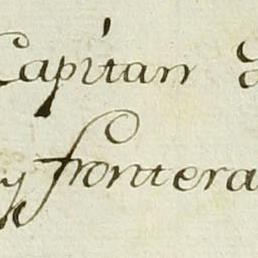 Capitan
y frontera